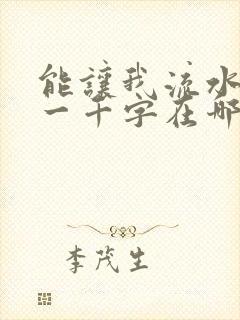 能讓我流水
一千字在哪
李茂生